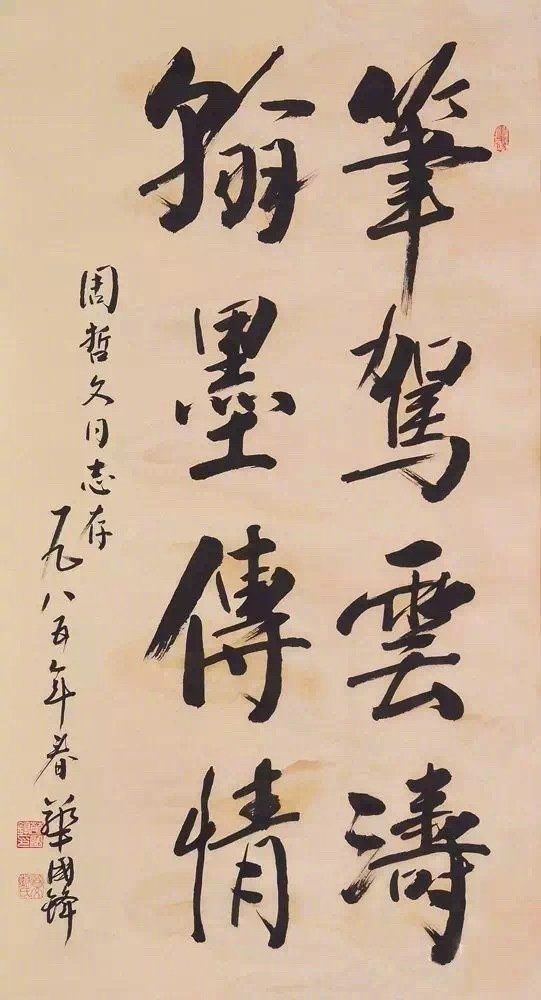 筆駕雲濤
翰墨傳情
周哲文同志存
一九八五年春
華國鋒